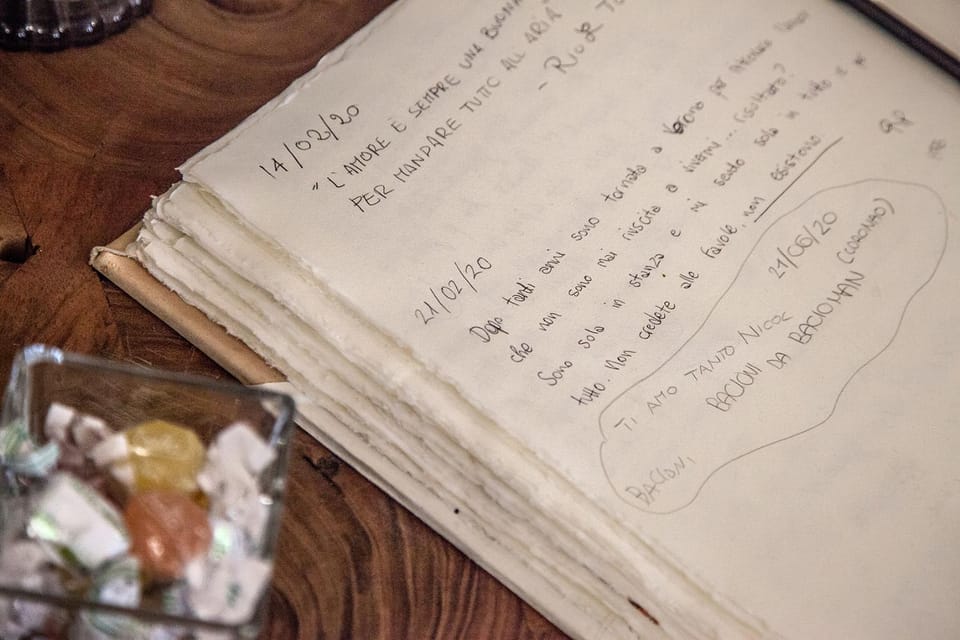 14/02/20
"L'AMORE È SEMPRE UNA BUONA
PER MANDARE TUTTO ALL'ARIA"
21/02/20
Dopo tanti anni sono tornato a Verona per
che non sono mai riuscito a rivivermi... risultato?
Sono solo in stanza e mi sento solo in tutto e x
tutto. Non credete alle favole, non esistono.
21/06/20
TI AMO TANTO NICOL
BACIONI DA BACIOMAN (CORONAO)
BACIONI,